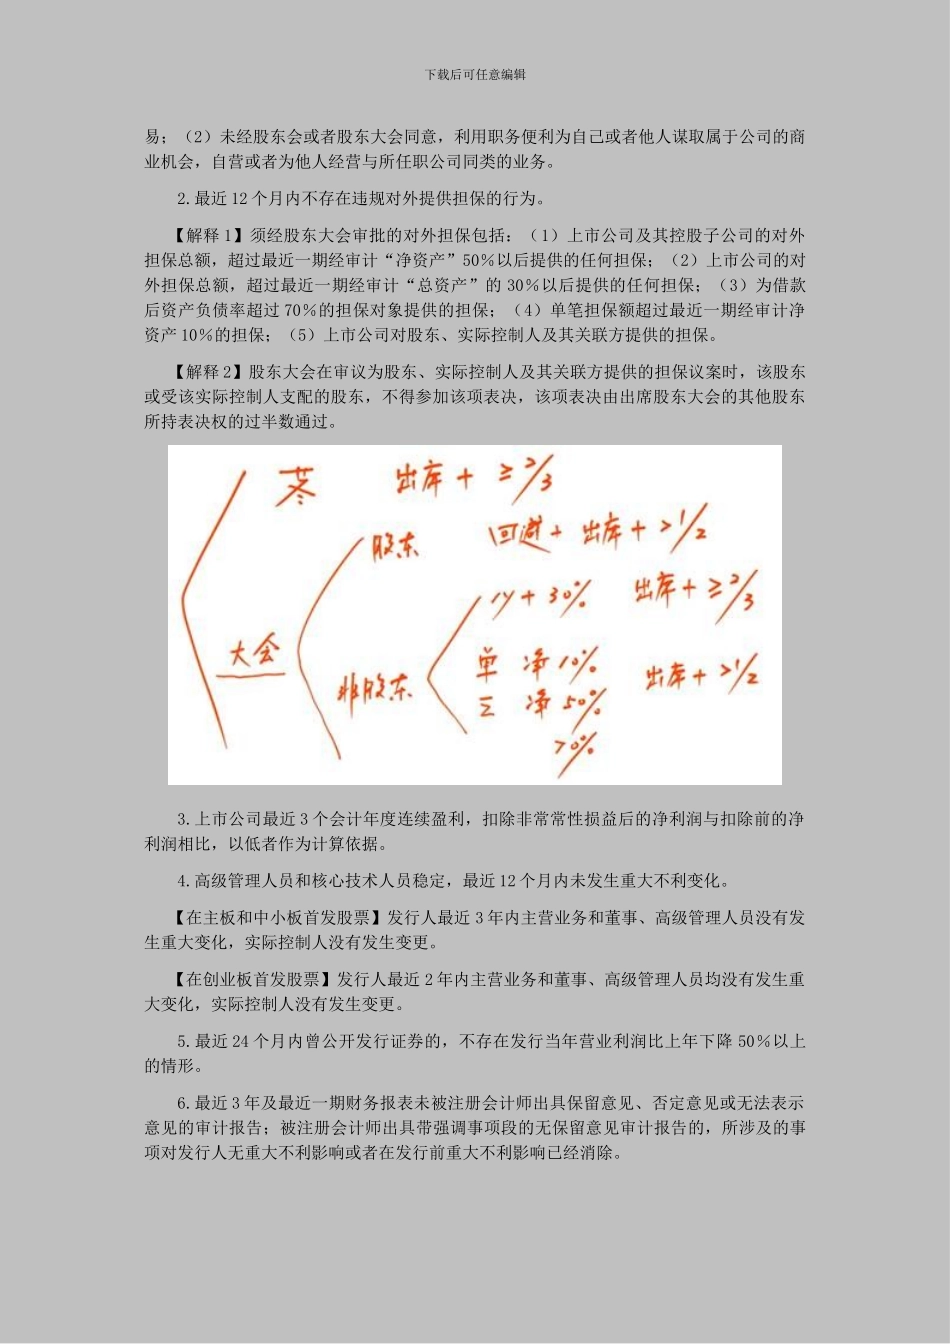 下载后可任意编辑
易；（2）未经股东会或者股东大会同意，利用职务便利为自己或者他人谋取属于公司的商
业机会，自营或者为他人经营与所任职公司同类的业务。
2.最近 12 个月内不存在违规对外提供担保的行为。
【解释 1】须经股东大会审批的对外担保包括：（1）上市公司及其控股子公司的对外
担保总额，超过最近一期经审计“净资产”50％以后提供的任何担保；（2）上市公司的对
外担保总额，超过最近一期经审计“总资产”的 30％以后提供的任何担保；（3）为借款
后资产负债率超过 70％的担保对象提供的担保；（4）单笔担保额超过最近一期经审计净
资产 10％的担保；（5）上市公司对股东、实际控制人及其关联方提供的担保。
【解释 2】股东大会在审议为股东、实际控制人及其关联方提供的担保议案时，该股东
或受该实际控制人支配的股东，不得参加该项表决，该项表决由出席股东大会的其他股东
所持表决权的过半数通过。
出席 + ≥2/3
股东 回避 + 出席 + >1/2
+ 30% 出席 + ≥2/3
大会
单 净10% 出席 + >1/2
非股东
净50%
70%
3.上市公司最近 3 个会计年度连续盈利，扣除非常常性损益后的净利润与扣除前的净
利润相比，以低者作为计算依据。
4.高级管理人员和核心技术人员稳定，最近 12 个月内未发生重大不利变化。
【在主板和中小板首发股票】发行人最近 3 年内主营业务和董事、高级管理人员没有发
生重大变化，实际控制人没有发生变更。
【在创业板首发股票】发行人最近 2 年内主营业务和董事、高级管理人员均没有发生重
大变化，实际控制人没有发生变更。
5.最近 24 个月内曾公开发行证券的，不存在发行当年营业利润比上年下降 50％以上
的情形。
6.最近 3 年及最近一期财务报表未被注册会计师出具保留意见、否定意见或无法表示
意见的审计报告；被注册会计师出具带强调事项段的无保留意见审计报告的，所涉及的事
项对发行人无重大不利影响或者在发行前重大不利影响已经消除。